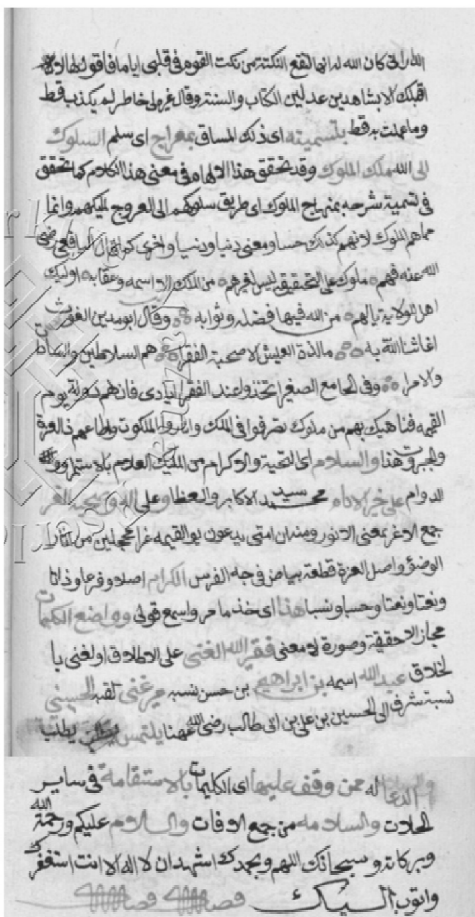 الداراني كان الله له انها لتقع النكتة من نكت القوم في قلبي اياما فاقول لها لا
اقبلك الا بشاهدين عدلين الكتاب والسنة وقال غيره لي خاطر لم يكذب قط
وما عملت به قط بتسميته اي ذلك المساق بمعراج اي سلم السلوك
الى الله ملك الملوك وقد تحقق هذا الالهام في معنى هذا الكلام كما تحقق
في تسمية شرحه بمنهاج الملوك اي طريق سلوكهم الى العروج لمليكهم وانما
سماهم الملوك لانهم كذلك حسا ومعنى دنيا ودنيا واخرى كما قال اليافعي رضي
الله عنه فهم ملوك على التحقيق ليس لغيرهم من الملك الا اسمه وعقابه اوليك
اهل الولاية نالهم من الله فيها فضله وثوابه وقال ابو مدين الغوث
اغاثنا الله به ما لذة العيش الا صحبة الفقرا هم السلاطين والسادات
والامرا وفي الجامع الصغير اتخذوا عند الفقرا ايادي فان لهم دولة يوم
القيمة فناهيك بهم من ملوك تصرفوا في الملك والملكوت
هذا والسلام اي التحية والاكرام من المليك العلام
الدوام على خير الانام محمد سيد الاكابر والعظام وعلى اله وصحبه الغر
جمع الاغر بمعنى الانور ومنه ان امتي يدعون يوم القيمة غرا محجلين من اثار
الوضو واصل الغرة قطعة بياض في جهة الفرس الكرام اصلا وفرعا وذاتا
ونعتا وحسبا ونسبا هذا اي خذ ما مر واسمع قولي وواضع الكلمات
مجاز الا حقيقة وصورة لا معنى فقير الله الغني على الاطلاق اولغني يا
لخلاق عبد الله اسمه بن ابراهيم بن حسن نسبه ميرغني لقبه الحسيني
نسبة شرف الى الحسين بن علي بن ابي طالب رضي الله عنهما يلتمس يطلب
الدعا له ممن وقف عليها اي الكلمات بالاستقامة في ساير
الحالات والسلامه من جمع الافات والسلام عليكم ورحمة الله
وبركاته وسبحانك اللهم وبحمدك اشهد ان لا اله الا انت استغفرك
واتوب اليك